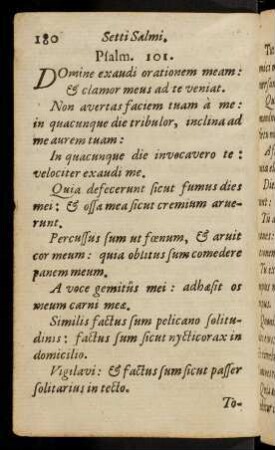 180 Setti Salmi.
Psalm. 101.
DOmine exaudi orationem meam:
& clamor meus ad te veniat.
Non avertas faciem tuam à me:
in quacunque die tribulor, inclina ad
me aurem tuam:
In quacunque die invocavero te:
velociter exaudi me.
Quia defecerunt sicut fumus dies
mei: & ossa mea sicut cremium arue-
runt.
Percussus sum ut fœnum, & aruit
cor meum: quia oblitus sum comedere
panem meum.
A voce gemitûs mei: adhæsit os
meum carni meæ.
Similis factus sum pelicano solitu-
dinis: factus sum sicut nycticorax in
domicilio.
Vigilavi: & factus sum sicut passer
solitarius in tecto.
To-